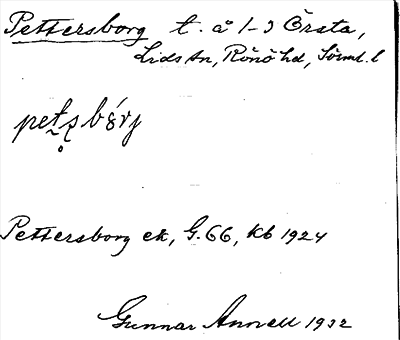 Pettersborg t. å 1-3 Örsta,
Lids sn, Rönö hd, Sörml. l
Pettersborg ek, G. 66, kb 1924
Gunnar Annell 1932